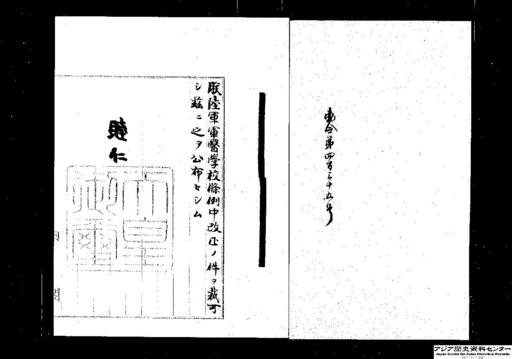 勅令第四百三十五号
朕陸軍軍醫学校條例中改正ノ件ヲ裁可
シ茲ニ之ヲ公布セシム
睦仁
天皇御璽
アジア歴史資料センター
Japan Center for Asian Historical Records